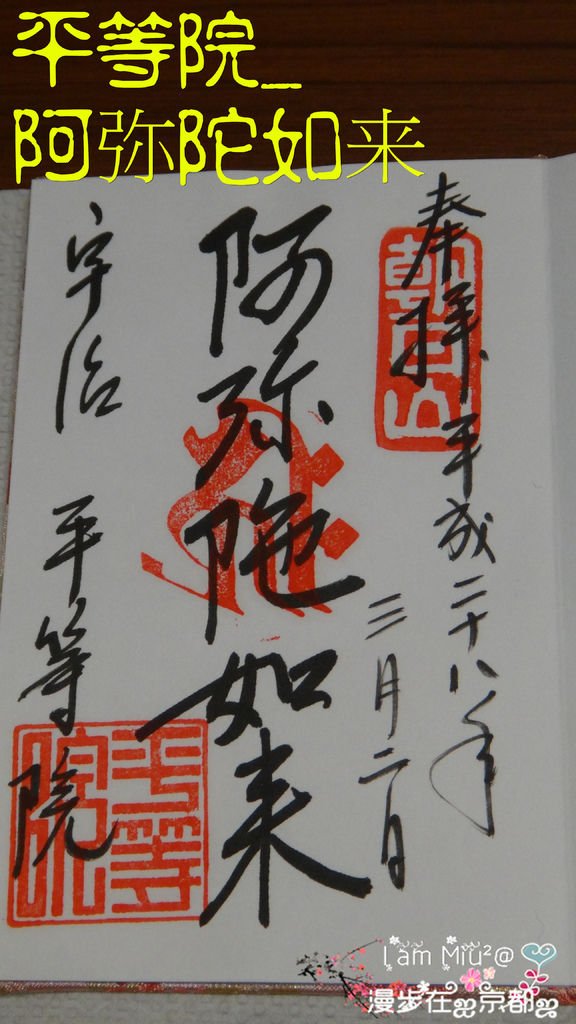 平等院_
阿弥陀如来
奉拝 平成二十八年
三月二日
朝日山
阿弥陀如来
宇治 平等院
平等院
I am Miu²@
漫步在ஐ京都ஐ